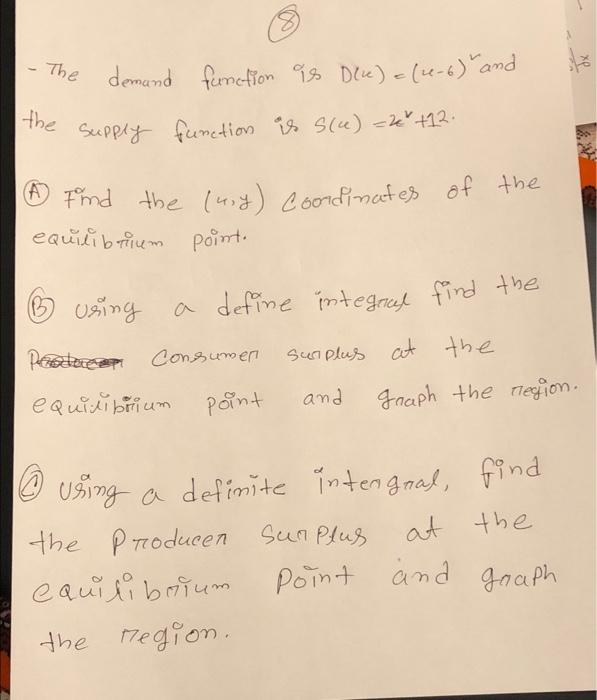 8
- The demand function is D(x) = (x-6)² and
the supply function is S(x) = x² +12.
A Find the (x,y) coordinates of the
equilibrium point.
B Using a define integral find the
consumer surplus at the
equilibrium point and graph the region.
C Using a definite intengral, find
the Producer Surplus at the
equilibrium Point and graph
the region.